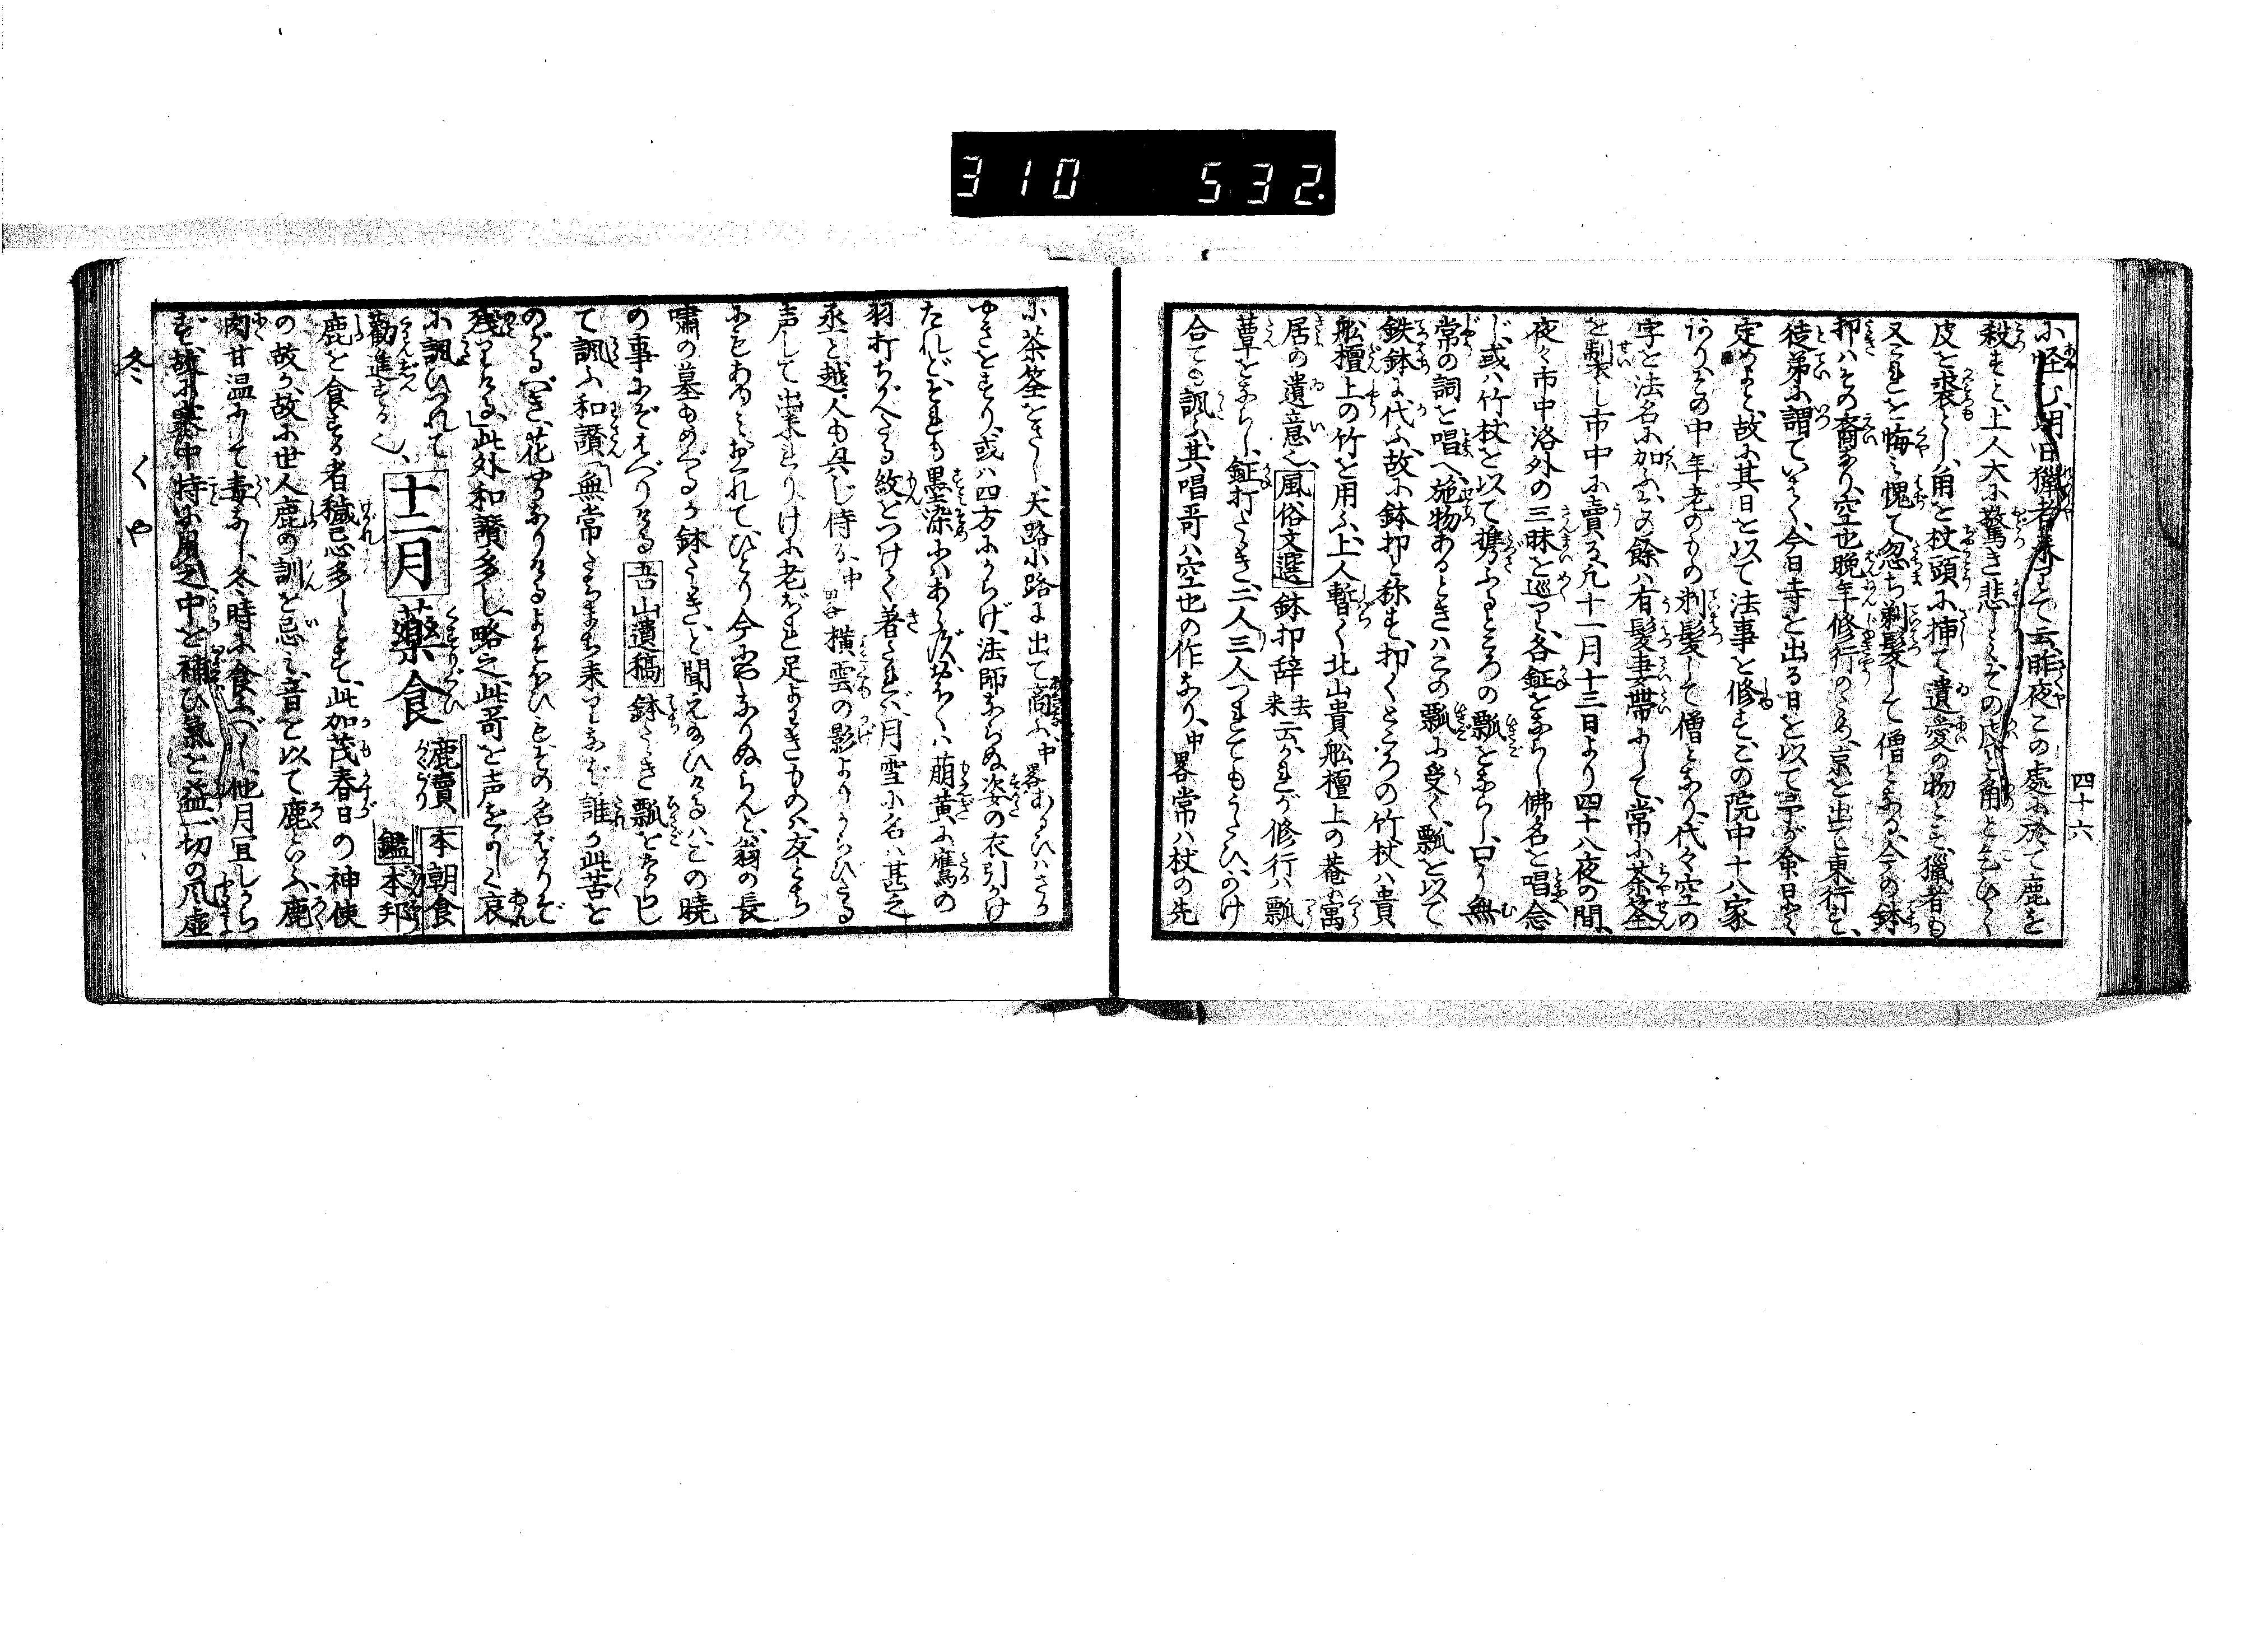 310 532.
四十六
に怪しむ、明旦獵者来りて云、昨夜この處に於て鹿を
殺すと、上人大に驚き悲しみ、その皮と角とを乞ひ
皮を裘とし、角を杖頭に挿て遺愛の物とす、獵者も
又これを悔み愧て、忽ち剃髪して僧となる、今の鉢
叩ハその裔なり、空也晩年修行のため、京を出て東行す、
徒弟に謂ていはく、今日寺を出る日を以て予が命日と
定めよと、故に其日を以て法事を修す、この院中十八家
あり、その中年老のもの剃髪して僧となり、代々空の
字を法名に加ふ、その餘ハ有髪妻帯にして、常に茶筌
を製し市中に賣る、凡十一月十三日より四十八夜の間、
夜々市中洛外の三昧を巡り、各鉦をならし佛名を唱念
じ、或ハ竹杖を以て携ふるところの瓢をならし、口に無
常の詞を唱へ、施物あるときハこの瓢に受く、瓢を以て
鉄鉢に代ふ、故に鉢叩と称す、叩くところの竹杖ハ貴
舩檀上の竹を用ふ、上人暫く北山貴舩檀上の菴に寓
居の遺意也、風俗文選鉢叩辞 去来 云、かれが修行ハ瓢
蕈をならし、鉦打たゝき、二人三人つれてもうたひ、かけ
合ても諷ふ、其唱哥ハ空也の作なり、中畧常ハ杖の先
に茶筌をさし、大路小路に出て商ふ、中畧あるひハさか
やきをすり、或ハ四方にからげ、法師ならぬ姿の衣引かけ
たれど、それも墨染にハあらず、おほくハ萠黄に鷹の
羽打ちがへたる紋をつけて著たれバ、月雪に名ハ甚之
丞と越人も具じ侍る、中畧横雲の影よりからびたる
声して出来り、げに老ぼれ足よわきもの、友どち
にもあゆみおくれて、ひとり今にやなりぬらんと、翁の長
嘯の墓もめぐるか鉢たゝき、と聞えたひけるハ、この曉
の事にぞはべりける 吾山遺稿 鉢たゝき瓢をならし
て諷ふ和讃「無常たちまち来りなバ誰か此苦を
のがるべき、花やかなりけるよそほひもその名ばかりぞ
残りける」此外和讃多し、略之、此哥を声をかしく哀
に諷ひつれて
勸進する也、 十二月 藥食 鹿賣 本朝食鑑 本邦
鹿を食する者穢忌多しとす、此加茂春日の神使
の故か、故に世人鹿の訓を忌み、音を以て鹿といふ、鹿
肉甘温にして毒なし、冬時に食ふべし、他月宜しから
ず、故に寒中特に用之、中を補ひ氣を益、一切の風虚
冬 くや